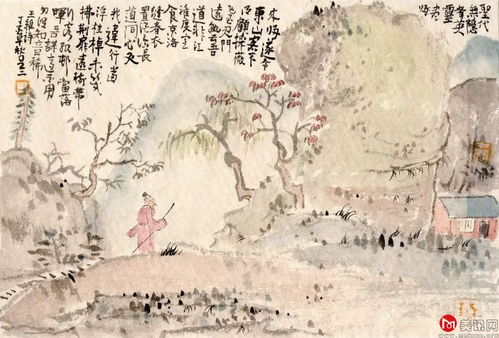 聖代
無隱
者英
靈
盡
來歸遂令
東山客不
得顧採薇
既至君門
遠孰云吾
道非江
淮度寒
食京洛
縫春衣
置酒長安
道同心與
我違行當
浮桂棹未幾
拂荊扉遠樹帶
行客孤城當落
暉吾謀適不用
勿謂知音稀
王維詩
美讯网